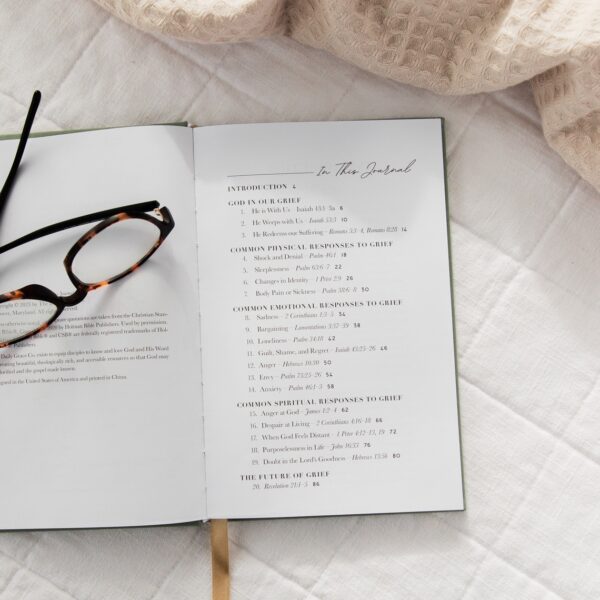 The
Maryland.
otherwise noted, quotations are taken from the Christian Stan-
by Holman Bible Publishers. Used by permission.
and CSB® are federally registered trademarks of Hol-
Publishers.
Daily Grace Co. exists to equip disciples to know and love God and His Word
beautiful, theologically rich, and accessible resources so that God may
glorified and the gospel made known.
Designed in the United States of America and printed in China.
In This Journal
INTRODUCTION 4
GOD IN OUR GRIEF
1. He is With Us – Isaiah 43:1-3a 6
2. He Weeps with Us – Isaiah 53:3 10
3. He Redeems our Suffering – Romans 5:3-4, Romans 8:28 14
COMMON PHYSICAL RESPONSES TO GRIEF
4. Shock and Denial – Psalm 46:1 18
5. Sleeplessness – Psalm 63:6-7 22
6. Changes in Identity – 1 Peter 2:9 26
7. Body Pain or Sickness – Psalm 38:6-8 30
COMMON EMOTIONAL RESPONSES TO GRIEF
8. Sadness – 2 Corinthians 1:3-5 34
9. Bargaining – Lamentations 3:37-39 38
10. Loneliness – Psalm 34:18 42
11. Guilt, Shame, and Regret – Isaiah 43:25-26 46
12. Anger – Hebrews 10:30 50
13. Envy – Psalm 73:25-26 54
14. Anxiety – Psalm 46:1-3 58
COMMON SPIRITUAL RESPONSES TO GRIEF
15. Anger at God – James 1:2-4 62
16. Despair at Living – 2 Corinthians 4:16-18 66
17. When God Feels Distant – 1 Peter 4:12-13, 19 72
18. Purposelessness in Life – John 16:33 76
19. Doubt in the Lord's Goodness – Hebrews 13:5b 80
THE FUTURE OF GRIEF
20. Revelation 21:1-5 86